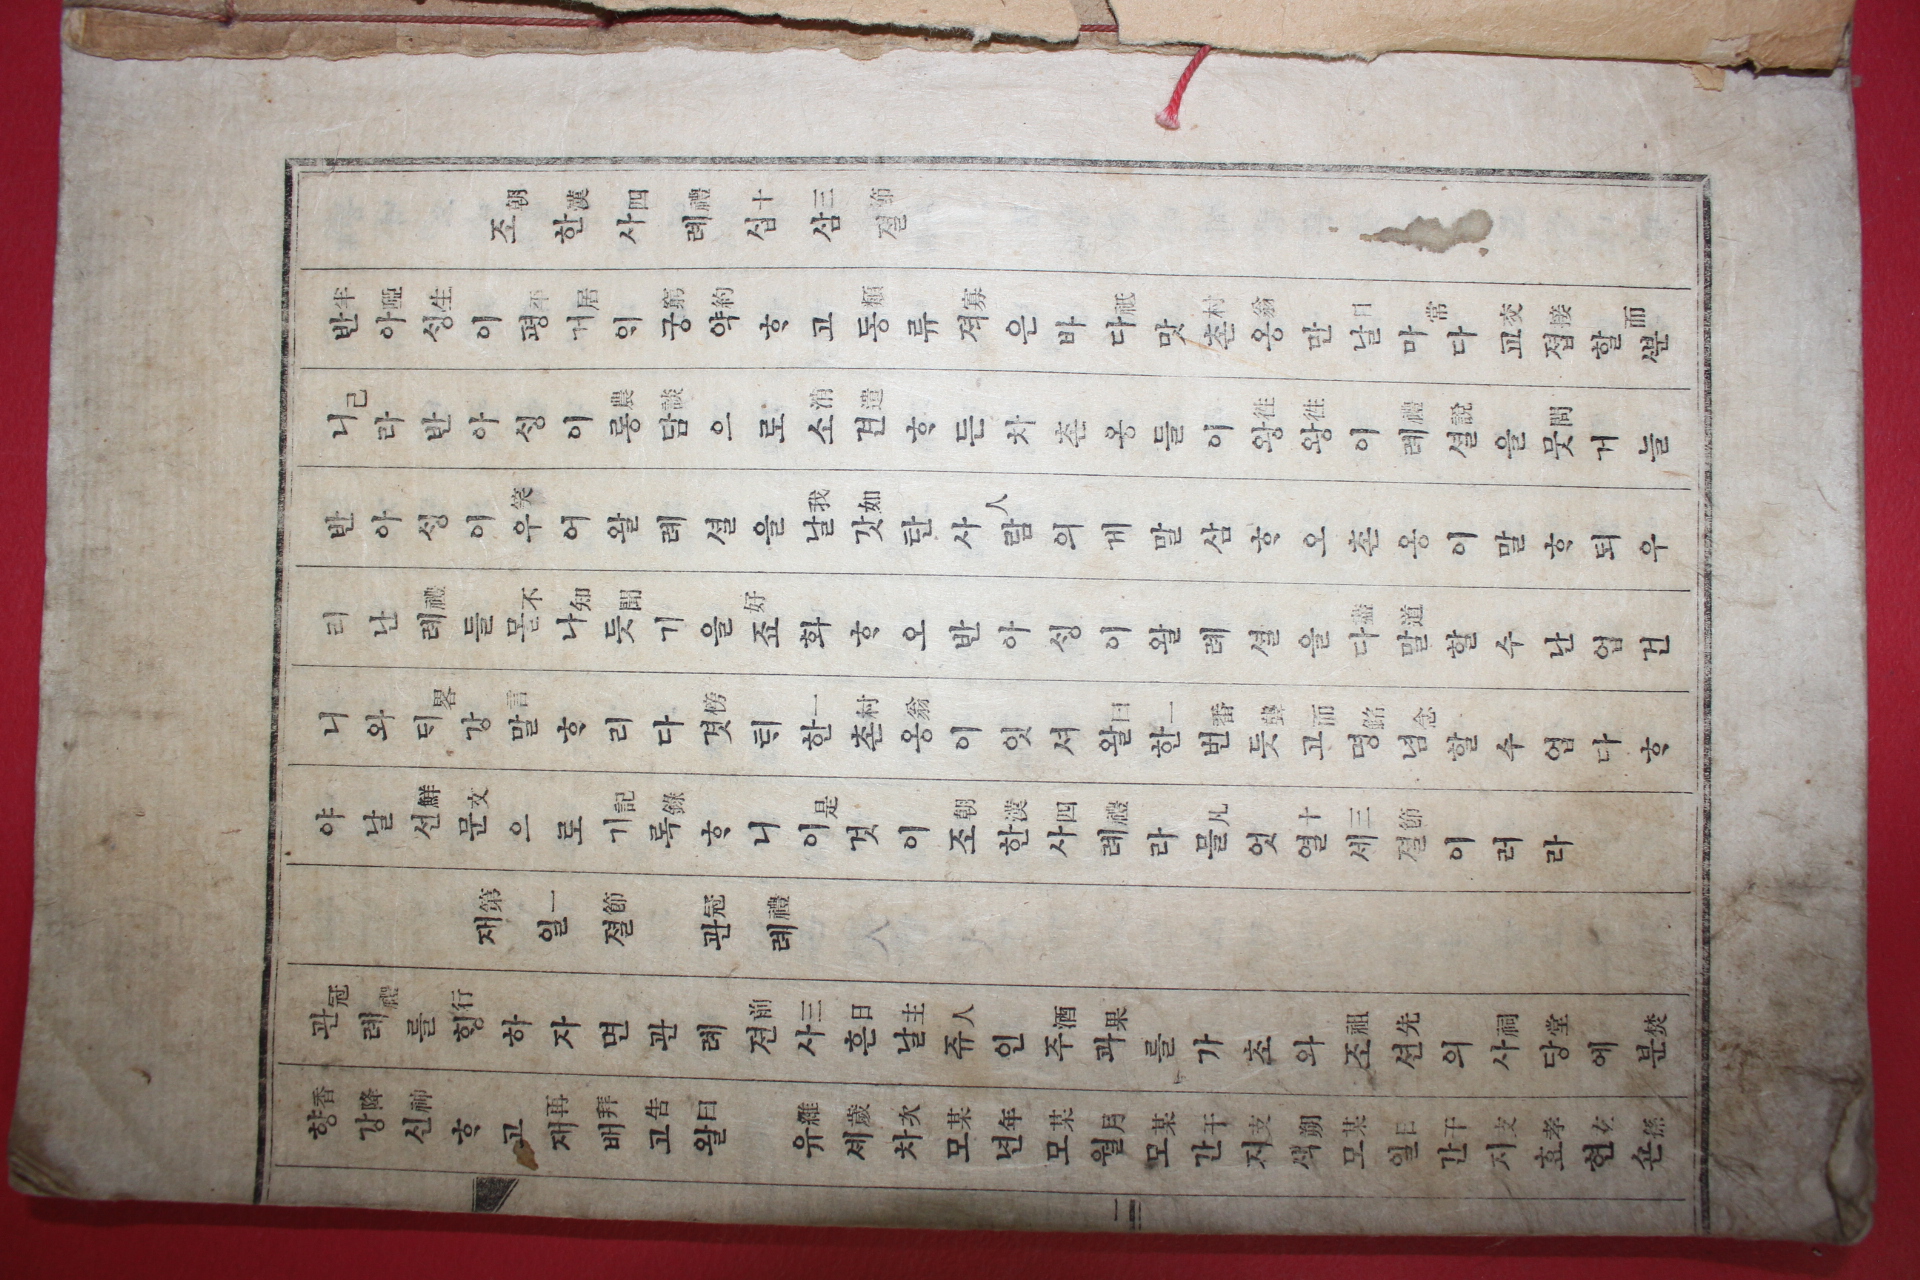 조한사례십삼졀
朝漢四禮十三節
반아ᄉᆡᆼ이평거ᄋᆡ궁약ᄒᆞ고동류젹은바다맛촌옹만날마다교졉할ᄲᅮᆫ
半啞生平居窮約類寡祗村翁日常交接而
니라반아ᄉᆡᆼ이롱담으로소견ᄒᆞ든차촌옹들이왕왕이례셜을뭇거늘
已農談消遣徃徃禮說問
반아ᄉᆡᆼ이우어왈례셜을날갓탄사람의게말삼ᄒᆞ오촌옹이말ᄒᆞ되우
笑我如人
리난례들몰나듯기을죠화ᄒᆞ오반아ᄉᆡᆼ이왈례셜을다말할수난업건
禮不知聞好盡道
니와ᄃᆡ강말ᄒᆞ리다겻ᄐᆡ한촌옹이잇셔왈한번듯고명념할수업다ᄒᆞ
畧言傍一村翁曰一番聽而銘念
야날선문으로기록ᄒᆞ니이것이조한사례라믈엇열세졀이러라
鮮文記錄是朝漢四禮凡十三節
재일졀 관례
第一節 冠禮
관례를ᄒᆡᆼ하자면관례젼사흔날쥬인주과를가초와조션의사당에분
冠禮行前三日主人酒果祖先祠堂焚
향강신ᄒᆞ고재배고왈 유셰차모년모월모간지ᄉᆡᆨ모일간지효현손
香降神再拜告曰 維歲次某年某月某干支朔某日干支孝玄孫
二